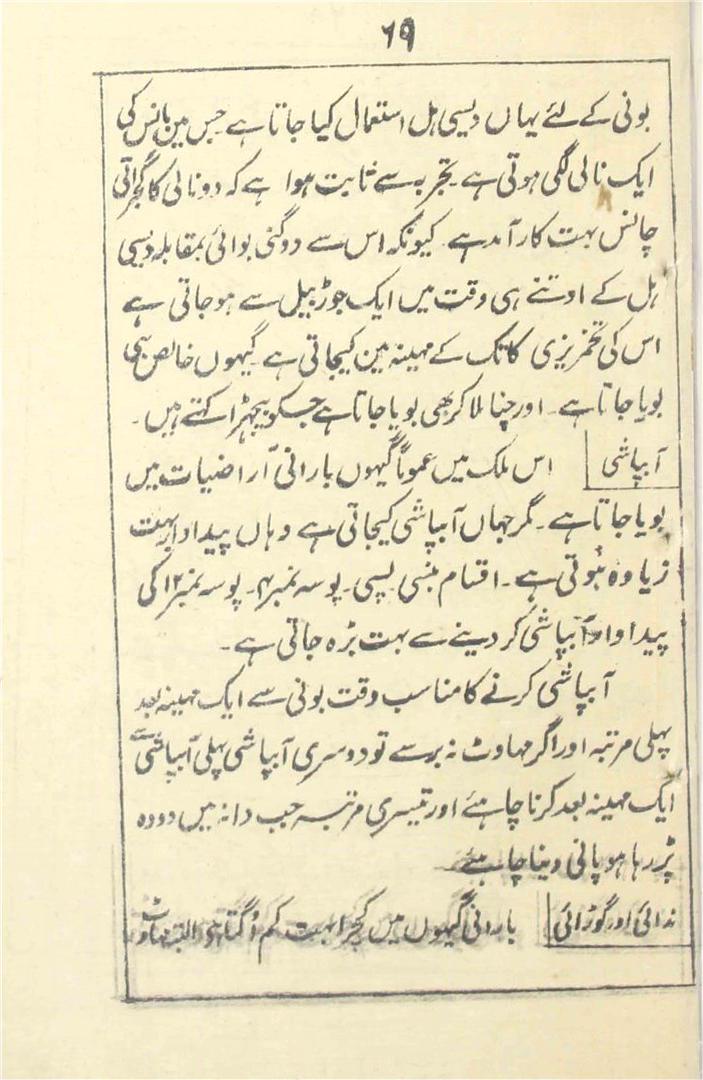 ۶۹
بونی کے لئے یہاں دیسی ہل استعمال کیا جاتا ہے جس مین بانس کی
ایک نالی لگی ہوتی ہے۔ تجربہ سے ثابت ہوا ہے کہ دونالی کا گجراتی
چانس بہت کارآمد ہے۔ کیونکہ اس سے دوگنی بوائی بمقابلہ دیسی
ہل کے اوتنے ہی وقت میں ایک جوڑ بیل سے ہوجاتی ہے
اس کی تخمریزی کاتک کے مہینہ مین کیجاتی ہے۔ گیہوں خالص بھی
بویا جاتا ہے۔ اور چنا ملا کر بھی بویا جاتا ہے جسکو بیجھڑا کہتے ہیں۔
آبپاشی اس ملک میں عموماً گیہوں بارانی آراضیات میں
بویا جاتا ہے۔ مگر جہاں آبپاشی کیجاتی ہے وہاں پیداوار بہت
زیادہ ہوتی ہے۔ اقسام بنسی پسی۔ پوسہ نمبر ۴۔ پوسہ نمبر ۱۲ کی
پیداوار آبپاشی کر دینے سے بہت بڑہ جاتی ہے۔
آبپاشی کرنے کا مناسب وقت بونی سے ایک مہینہ بعد
پہلی مرتبہ اور اگر مہاوٹ نہ برسے تو دوسری آبپاشی پہلی آبپاشی سے
ایک مہینہ بعد کرنا چاہئے اور تیسری مرتبہ جب دانہ میں دودہ
پڑ رہا ہو پانی دینا چاہئے۔
ندائی اور گوڑائی بارانی گیہوں میں کچرا بہت کم اُگتا ہی البتہ مہاوٹ